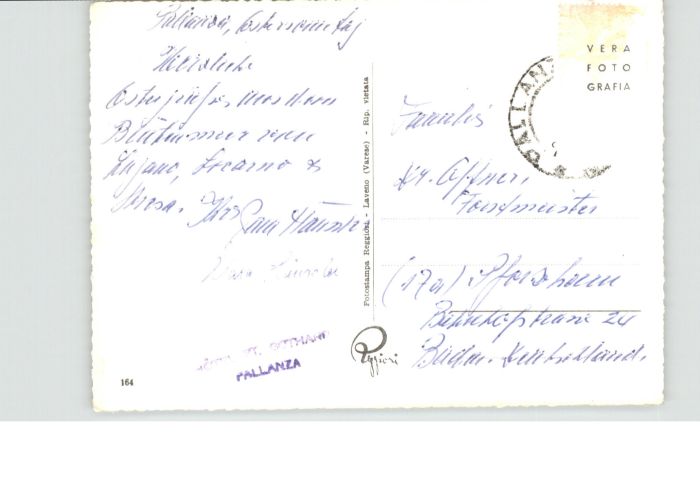 Pallanza, Ostersonntag
Herzliche
Ostergrüsse aus dem
Blütenmeer von
Lugano, Locarno &
Stresa. Ihre
Familie
Offner,
Forstmeister
(17a) Pforzheim
Bahnhofstrasse 24
Baden. Deutschland.
PALLANZA
VERA
FOTO
GRAFIA
Fotostampa Reggiori - Laveno (Varese) - Rip. vietata
Reggiori
HOTEL ST. GOTTHARD
PALLANZA
164